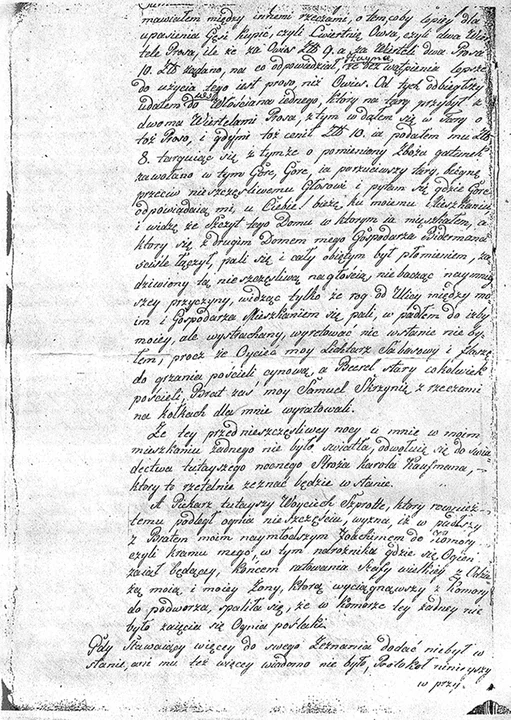 mawiałem między inkemi rzeczami, o tem, coby lepiey dla
upasienia Gęsi kupić, czyli Cwiertnię Owsa, czyli dwa Wier
tele Prosa, ile że za Owies Złł 9. a za Wiertel dwa Prosa
10. Złł żądano, na co odpowiedział, że bez wątpienia lepsze
do użycia tego iest proso, niż Owies. Od tych odbiegłszy
udałem się do Włościana iednego, który na targ przybył z
dwoma Wiertelami Prosa, z tym wdałem się w targ o
toż Proso, i gdy mi toż cenił Złł 10. ia podałem mu Złł
8. targuiąc się z tymże o pomieniony Zboża gatunek
zawołano w tym Gore, Gore, ia porzuciwszy targ, bieżę
przeciw nieszczęśliwemu Głosowi i pytam się gdzie Gore
odpowiadaią mi, u Ciebie, bieżę ku moiemu Mieszkaniu,
i widzę że Szczyt tego Domu w którym ia mieszkałem, a
który się z drugim Domem mego Gospodarza Bidermana
ściśle łączył, pali się i cały obiętym był płomieniem, za
dziwiony tą nieszczęśliwą nagłością, nie bacząc naymniey
szey przyczyny, widząc tylko że rog od Ulicy między mo
im i Gospodarza Mieszkaniem się pali, wpadłem do izby
moiey, ale wystrachany, wyretować nic w stanie nie by
łem, procz że Oyciec moy Lichtarz Szabasowy i flaszę
do grzania pościeli cynową, a Beerel stary cokolwiek
pościeli, Brat zaś moy Samuel Skrzynię z rzeczami
na kółkach dla mnie wyratowali.
Że tey przed nieszczęsliwey nocy u mnie w moim
mieszkaniu żadnego nie było swiatła, odwołuię się do świa
dectwa tutayszego nocnego Stroża Karola Kaufmana,
który to rzetelnie zeznać będzie w stanie.
A Piekarz tutayszy Woyciech Szprotte, który rowniez
temu podległ ognia nieszczęściu, wyzna, iż wpadłszy
z Bratem moim naymłodszym Joachimem do Komory
czyli kramu mego, w tym narożnika gdzie się Ogien
zaiął będącey, końcem ratowania Szafy wielkiey z Odzie
żą moią i moiey Żony, którą wyciągnąwszy z Komory
do podworza, spaliła się, że w Komorze tey żadney nie
było zaięcia się Ognia poszlaki
Gdy Stawaiący więcey do swego Zeznania dodać nie był w
stanie, ani mu też więcey wiadomo nie było, Protokoł ninieyszy
w przy